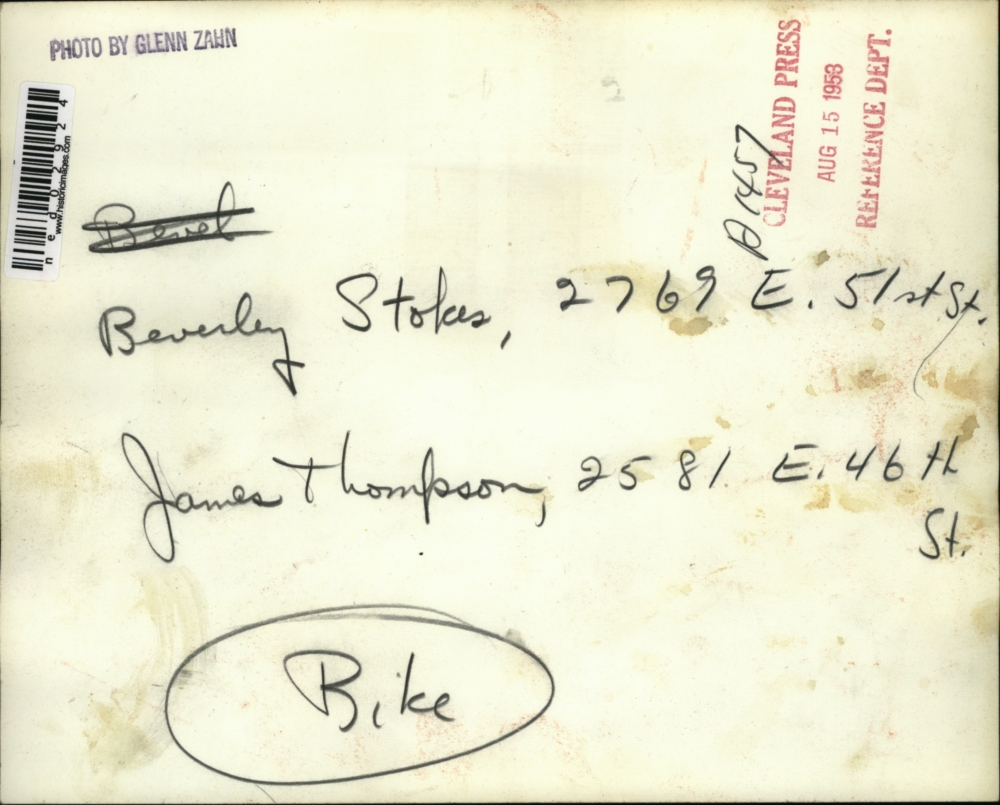 PHOTO BY GLENN ZAHN
ned02924
www.historicimages.com
CLEVELAND PRESS
AUG 15 1958
REFERENCE DEPT.
A1457
Bevel
Beverley Stokes, 2769 E. 51st St.
James Thompson, 2581 E. 46th
St.
Bike